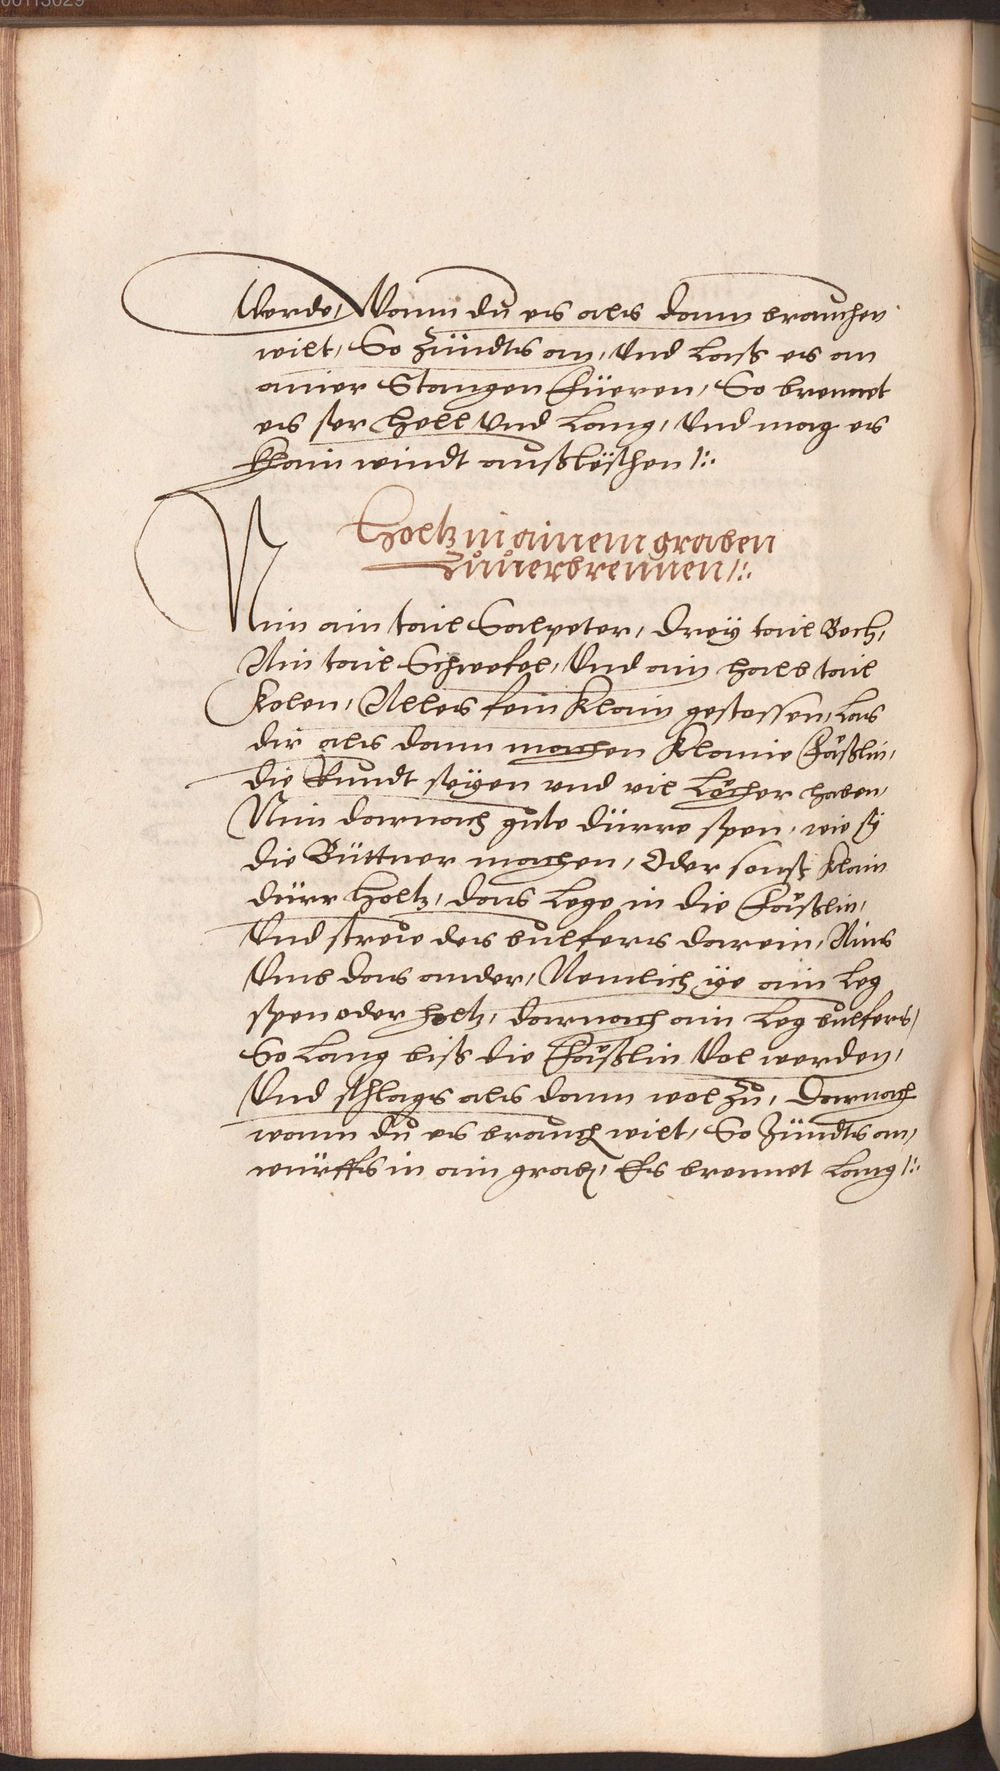 00113029
Werde, Wann du es als dann brauchen
wilt, So Zündts an, Und Lasß es an
ainer Stangen Füeren, So brennet
es ser hell Und Lang, Und mag es
Khain windt außlöschen /:.
Holtz in ainem graben
Zuuerbrennen /:.
Nim ain tail Salpeter, Drey tail Bech,
Ain tail Schwefel, Und ain halb tail
Kolen, Alles fein Klain gestossen, Las
dir als dann machen Klaine Fäßlin,
die Rundt seyen vnd vil Löcher haben,
Nim darnach gute dürre spen, wie sy
die Büttner machen, Oder sonst Klain
dürr Holtz, das Lege in die Fäßlin,
Und strew des bulfers darein, Ains
Umb das ander, Nemlich ye ain Leg
spen oder holtz, darnach ain Leg bulfers,
So Lang biß die Fäßlin Vol werden,
Und schlags als dann wol Zů, Darnach
wann du es brauch wilt, So Zündts an,
würffs in ain graben, Es brennet Lang /:.